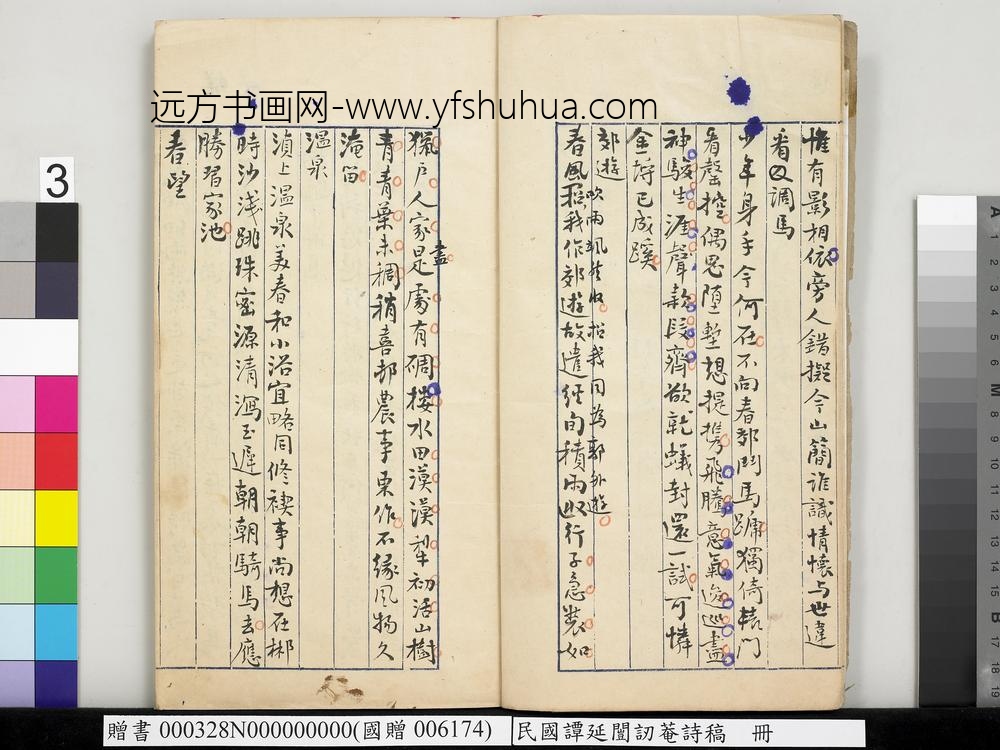 远方书画网-www.yfshuhua.com
惟有影相依旁人錯擬今山簡誰識情懷与世違
看人調馬
少年身手今何在不向春郊鬥馬蹏獨倚轅門
看罄控偶思堕塹想提攜飛騰意氣逡巡盡
神駿生涯聲款段齊欲就蟻封還一試可憐
金埒已成蹊
郊遊
春風招我作郊遊故遣經旬積雨收行子急裝如
獵戶人家是處有碉樓水田漠漠犂初活山樹
盡
青青葉未稠稍喜鄰農事東作不緣風物久
淹留
溫泉
湞上溫泉美春和小浴宜略同修禊事尚想在郴
時沙淺跳珠密源清瀉玉遲朝朝騎馬去應
勝習家池
春望
3
贈書 000328N000000000(國贈 006174)
民國譚延闓訒菴詩稿 冊
A
1
2
3
4
5
6
7
8
M
9
10
11
12
13
14
15
B
17
18
19